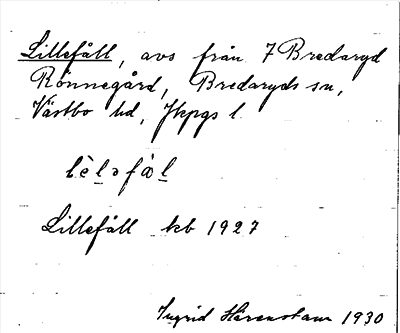 Lillefåll, avs från 7 Bredaryd
Rönnegård, Bredaryds sn,
Västbo hd, Jkpgs l.
lèl̲əfål̲
Lillefåll kb 1927
Ingrid Härenstam 1930